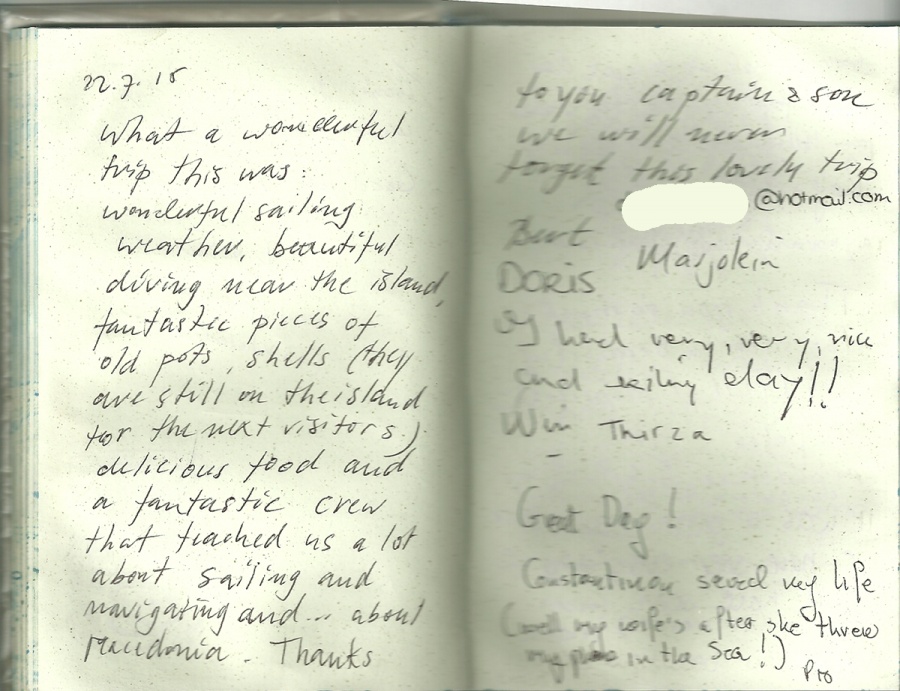 22.7.15
What a wonderful
trip this was:
wonderful sailing
weather, beautiful
diving near the island,
fantastic pieces of
old pots, shells (they
are still on the island
for the next visitors.)
delicious food and
a fantastic crew
that teached us a lot
about sailing and
navigating and... about
Macedonia. Thanks
to you captain & son
we will never
forget this lovely trip
@hotmail.com
Bert
Marjolein
DORIS
I had very, very, nice
and day!!
Wim Thirza
Great Day!
saved my life
(well my wife's after she threw
my in the Sea!)